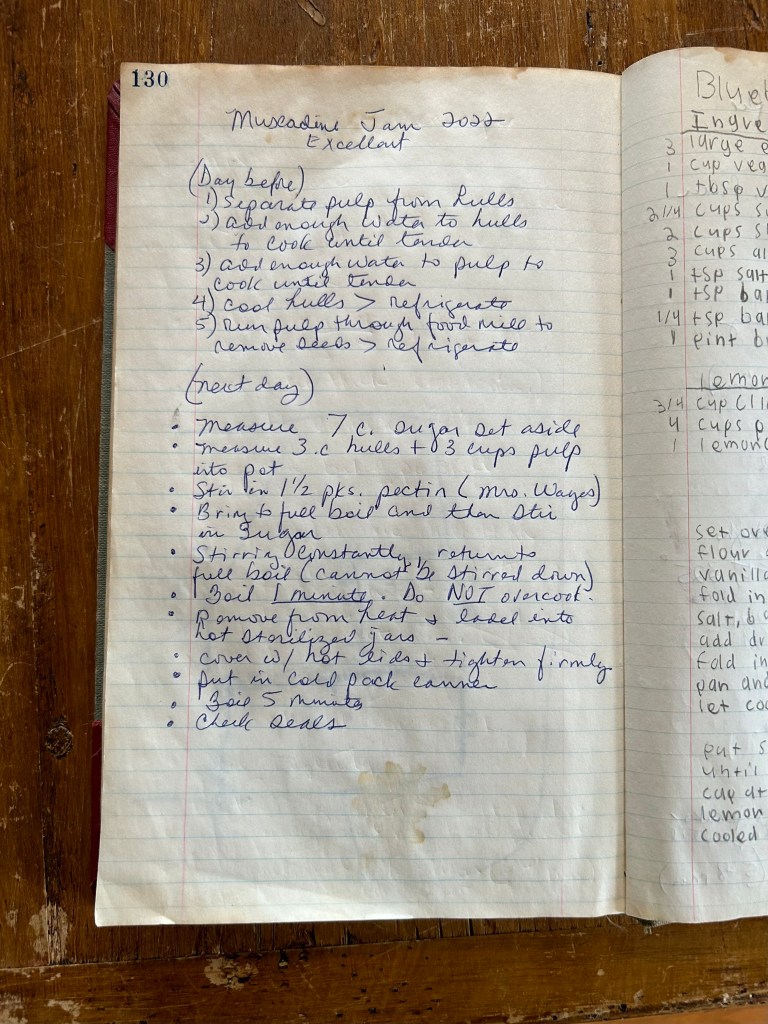 130
Muscadine Jam 2022
Excellent
(Day before)
1) Separate pulp from hulls
2) add enough water to hulls
to cook until tender
3) add enough water to pulp to
cook until tender
4) cool hulls > refrigerate
5) run pulp through food mill to
remove seeds > refrigerate
(next day)
• Measure 7 c. sugar set aside
• measure 3 c hulls + 3 cups pulp
into pot
• Stir in 1 1/2 pks. pectin (Mrs. Wages)
• Bring to full boil and then stir
in sugar
• Stirring constantly, return to
full boil (cannot be stirred down)
• Boil 1 minute. Do NOT overcook.
• Remove from heat & ladel into
hot sterilized jars –
• cover w/ hot lids & tighten firmly
• put in cold pack canner
• Boil 5 minutes
• Check seals
Blue
Ingre
3 large e
1 cup veg
1 tbsp v
2 1/4 cups s
2 cups s
3 cups al
1 tsp salt
1 tsp ba
1/4 tsp ba
1 pint b
Lemon
3/4 cup
4 cups p
1 lemon
set ov
flour
vanilla
fold in
salt, b
add dr
fold in
pan and
let coo
put s
until
cup at
lemon
cooled